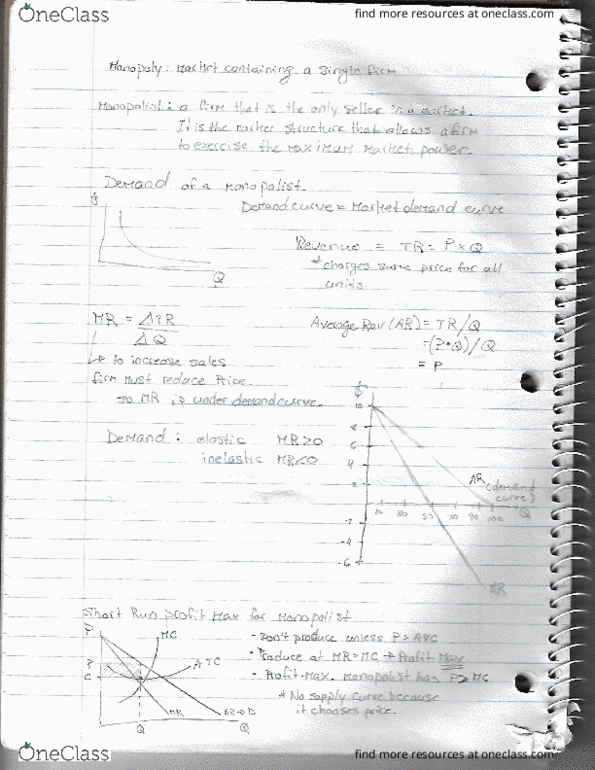 OneClass
find more resources at oneclass.com
Monopoly: Market containing a single firm
Monopolist: a firm that is the only seller in a market.
It is the market structure that allows a firm
to exercise the maximum market power.
Demand of a monopolist.
Demand curve = Market demand curve
Q
Revenue = TR = P x Q
* charges same price for all
units.
MR = ΔTR
ΔQ
Average Rev (AR) = TR/Q
= (P*Q)/Q
= P
↳ to increase sales
firm must reduce Price.
→ MR is under demand curve.
Demand: elastic MR>0
inelastic MR<0
10
8
6
4
2
-2
-4
-6
10 30 50 70 90 100
Q
AR (demand
curve)
MR
Short Run profit Max for Monopolist
P
MC
ATC
P
C
MR
AR=D
Q
Q
- Don't produce unless P > AVC
- Produce at MR=MC → Profit Max
- Profit-Max. monopolist has P>MC
* No supply curve because
it chooses price.
OneClass
find more resources at oneclass.com